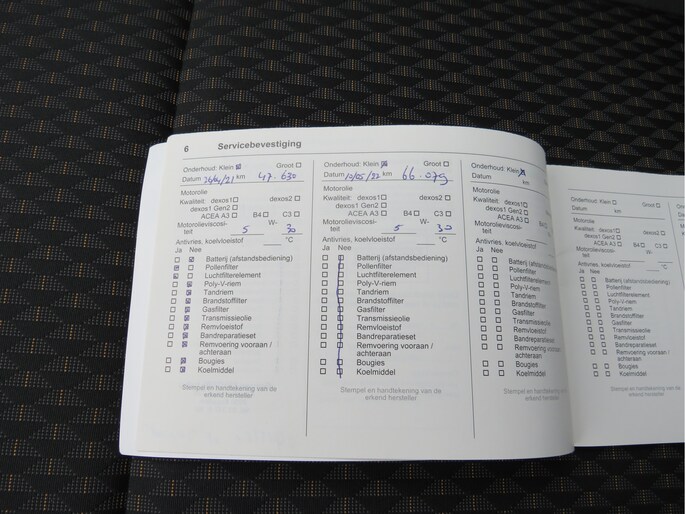 6 Servicebevestiging
Onderhoud: Klein ☒ Groot ☐
Datum 26/04/21 km 47.630
Motorolie
Kwaliteit: dexos1 ☐ dexos2 ☐
dexos1 Gen2 ☐
ACEA A3 ☐ B4 ☐ C3 ☐
Motorolieviscosi- W-
teit 5 30
Antivries, koelvloeistof °C
Ja Nee
☐ ☒ Batterij (afstandsbediening)
☒ ☐ Pollenfilter
☒ ☐ Luchtfilterelement
☐ ☒ Poly-V-riem
☐ ☒ Tandriem
☐ ☒ Brandstoffilter
☐ ☒ Gasfilter
☐ ☒ Transmissieolie
☐ ☒ Remvloeistof
☐ ☒ Bandreparatieset
☐ ☒ Remvoering vooraan /
achteraan
☐ ☒ Bougies
☐ ☒ Koelmiddel
Stempel en handtekening van de
erkend hersteller
Onderhoud: Klein ☒ Groot ☐
Datum 10/05/22 km 66.079
Motorolie
Kwaliteit: dexos1 ☐ dexos2 ☐
dexos1 Gen2 ☐
ACEA A3 ☐ B4 ☐ C3 ☐
Motorolieviscosi- W-
teit 5 30
Antivries, koelvloeistof °C
Ja Nee
☐ ☐ Batterij (afstandsbediening)
☐ ☐ Pollenfilter
☐ ☐ Luchtfilterelement
☐ ☐ Poly-V-riem
☐ ☐ Tandriem
☐ ☐ Brandstoffilter
☐ ☐ Gasfilter
☐ ☐ Transmissieolie
☐ ☐ Remvloeistof
☐ ☐ Bandreparatieset
☐ ☐ Remvoering vooraan /
achteraan
☐ ☐ Bougies
☐ ☐ Koelmiddel
Stempel en handtekening van de
erkend hersteller
Onderhoud: Klein ☒
Datum km
Motorolie
Kwaliteit: dexos1 ☐
dexos1 Gen2 ☐
ACEA A3 ☐ B4
Motorolieviscosi-
teit
Antivries, koelvloeistof
Ja Nee
☐ ☐ Batterij (afstandsbediening)
☐ ☐ Pollenfilter
☐ ☐ Luchtfilterelement
☐ ☐ Poly-V-riem
☐ ☐ Tandriem
☐ ☐ Brandstoffilter
☐ ☐ Gasfilter
☐ ☐ Transmissieolie
☐ ☐ Remvloeistof
☐ ☐ Bandreparatieset
☐ ☐ Remvoering vooraan /
achteraan
☐ ☐ Bougies
☐ ☐ Koelmiddel
Stempel en handtekening van de
erkend hersteller
Onderhoud: Klein ☐ Groot ☐
Datum km
Motorolie
Kwaliteit: dexos1 ☐ dexos2 ☐
dexos1 Gen2 ☐
ACEA A3 ☐ B4 ☐ C3 ☐
Motorolieviscosi- W-
teit
Antivries, koelvloeistof °C
Ja Nee
☐ ☐ Batterij (afstandsbediening)
☐ ☐ Pollenfilter
☐ ☐ Luchtfilterelement
☐ ☐ Poly-V-riem
☐ ☐ Tandriem
☐ ☐ Brandstoffilter
☐ ☐ Gasfilter
☐ ☐ Transmissieolie
☐ ☐ Remvloeistof
☐ ☐ Bandreparatieset
☐ ☐ Remvoering vooraan /
achteraan
☐ ☐ Bougies
☐ ☐ Koelmiddel
Stempel en handtekening van de
erkend hersteller